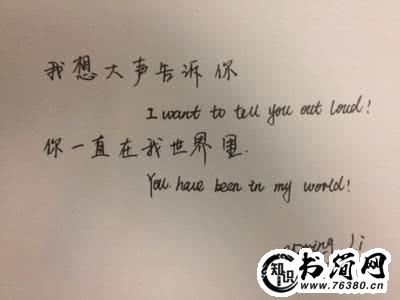 我想大声告诉你
I want to tell you out loud!
你一直在我世界里.
You have been in my world!
Ji
知识
书简网
www.76380.cn